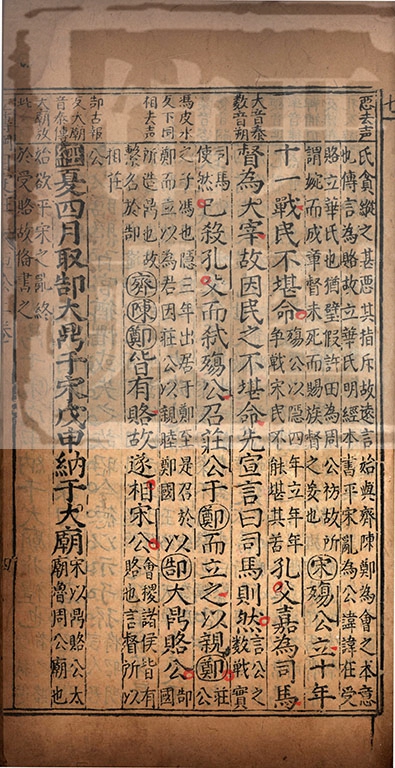 惡去声
氏貪縱之甚惡其指斥故遠言始與齊陳鄭為會之本意
也傳言為賂故立華氏明經本書平宋亂為公諱諱在受
賂立華氏也猶璧假許田為周公祊故所
謂婉而成章督未死而賜族督之妄也
宋殤公立十年
十一戰民不堪命
殤公以隱四年立年年
爭戰宋民不能堪其苦
孔父嘉為司馬
大音泰
數音朔
督為大宰故因民之不堪命先宣言曰司馬則然
言公之
數戰實
司馬
使然
已殺孔父而弒殤公召莊公于鄭而立之以親鄭
莊
公
馮皮氷
反下同
相去声
之子馮也隱三年出居于鄭至是召於
鄭而立以為君因莊公以親睦鄭國
以郜大鼎賂公
郜
國
所造鼎也故
繫名於郜
齊陳鄭皆有賂故遂相宋公
會稷諸侯皆有
賂也言督所以
相任
公
郜古報
反大廟
音泰傳
大廟放
此
經夏四月取郜大鼎于宋戊申納于大廟
宋以鼎賂公太
廟魯周公廟也
始欲平宋之亂終
於受賂故備書之